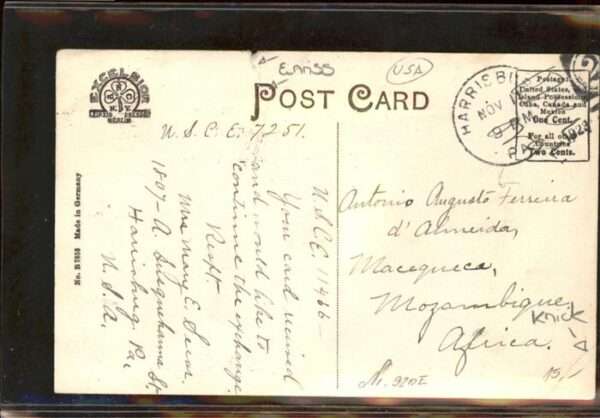 EXCELSIOR
BERLIN
EAMSS
USA
POST CARD
HARRISBU
NOV
9 PM
PA.
1923
Postage:
United States,
Island Possessions,
Cuba, Canada and
Mexico
One Cent.
For all other
Countries
Two Cents.
U.S.C.E. 7251.
U.S.C.E. 11966 -
Your card received
and would like to
continue the exchange.
Respt.
Mrs. Mary E.
1807-A Susquehanna St,
Harrisburg, Pa
U.S.A.
No. B 7805 Made in Germany
Antonio Augusto Ferreira
d' Almeida,
Macequeca,
Mozambique,
Africa.
KNICK
15,-